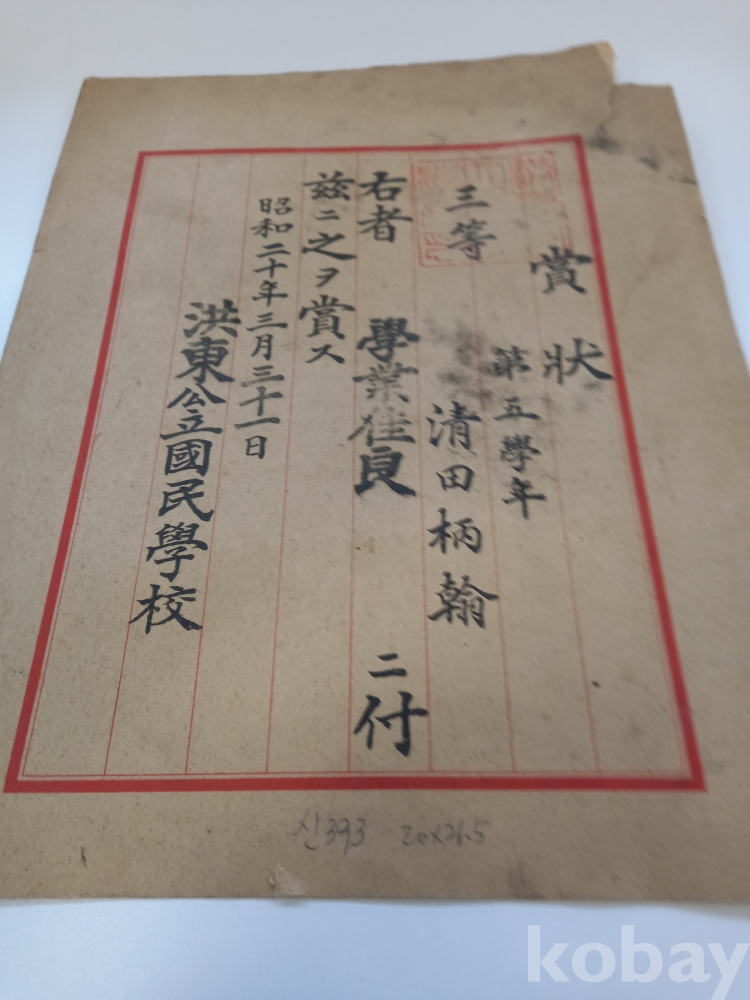 賞狀
第五學年
三等
清田柄翰
右者 學業佳良 ニ付
茲ニ之ヲ賞ス
昭和二十年三月三十一日
洪東公立國民學校
신393 20x26.5
kobay